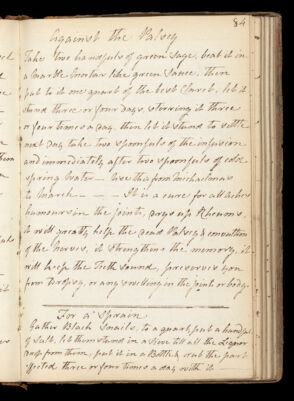 84
Against the Palsey
Take two handfuls of green Sage, beat it in
a Marble Mortar like green Sauce, then
put to it one quart of the best Claret, let it
stand three or four days, stirring it three
or four times a day, then let it stand to settle
next day take two spoonfuls of the infusion
and immediately after two spoonfuls of cold
spring Water — Use this from Michaelmas
to March — — It is a cure for all Aches
humours in the joints, drys up Rheums.
it will greatly help the dead Palsey &
of the Nerves, it strengthens the memory, it
will keep the Teeth sound, preserves you
from Dropsey, or any swelling in the joint or body.
For a Sprain
Gather Black Snails, to a quart put a handful
of Salt, let them stand in a Sive till all the Liquor
drop from them, put it in a Bottle & rub the part
affected three or four times a day with it —